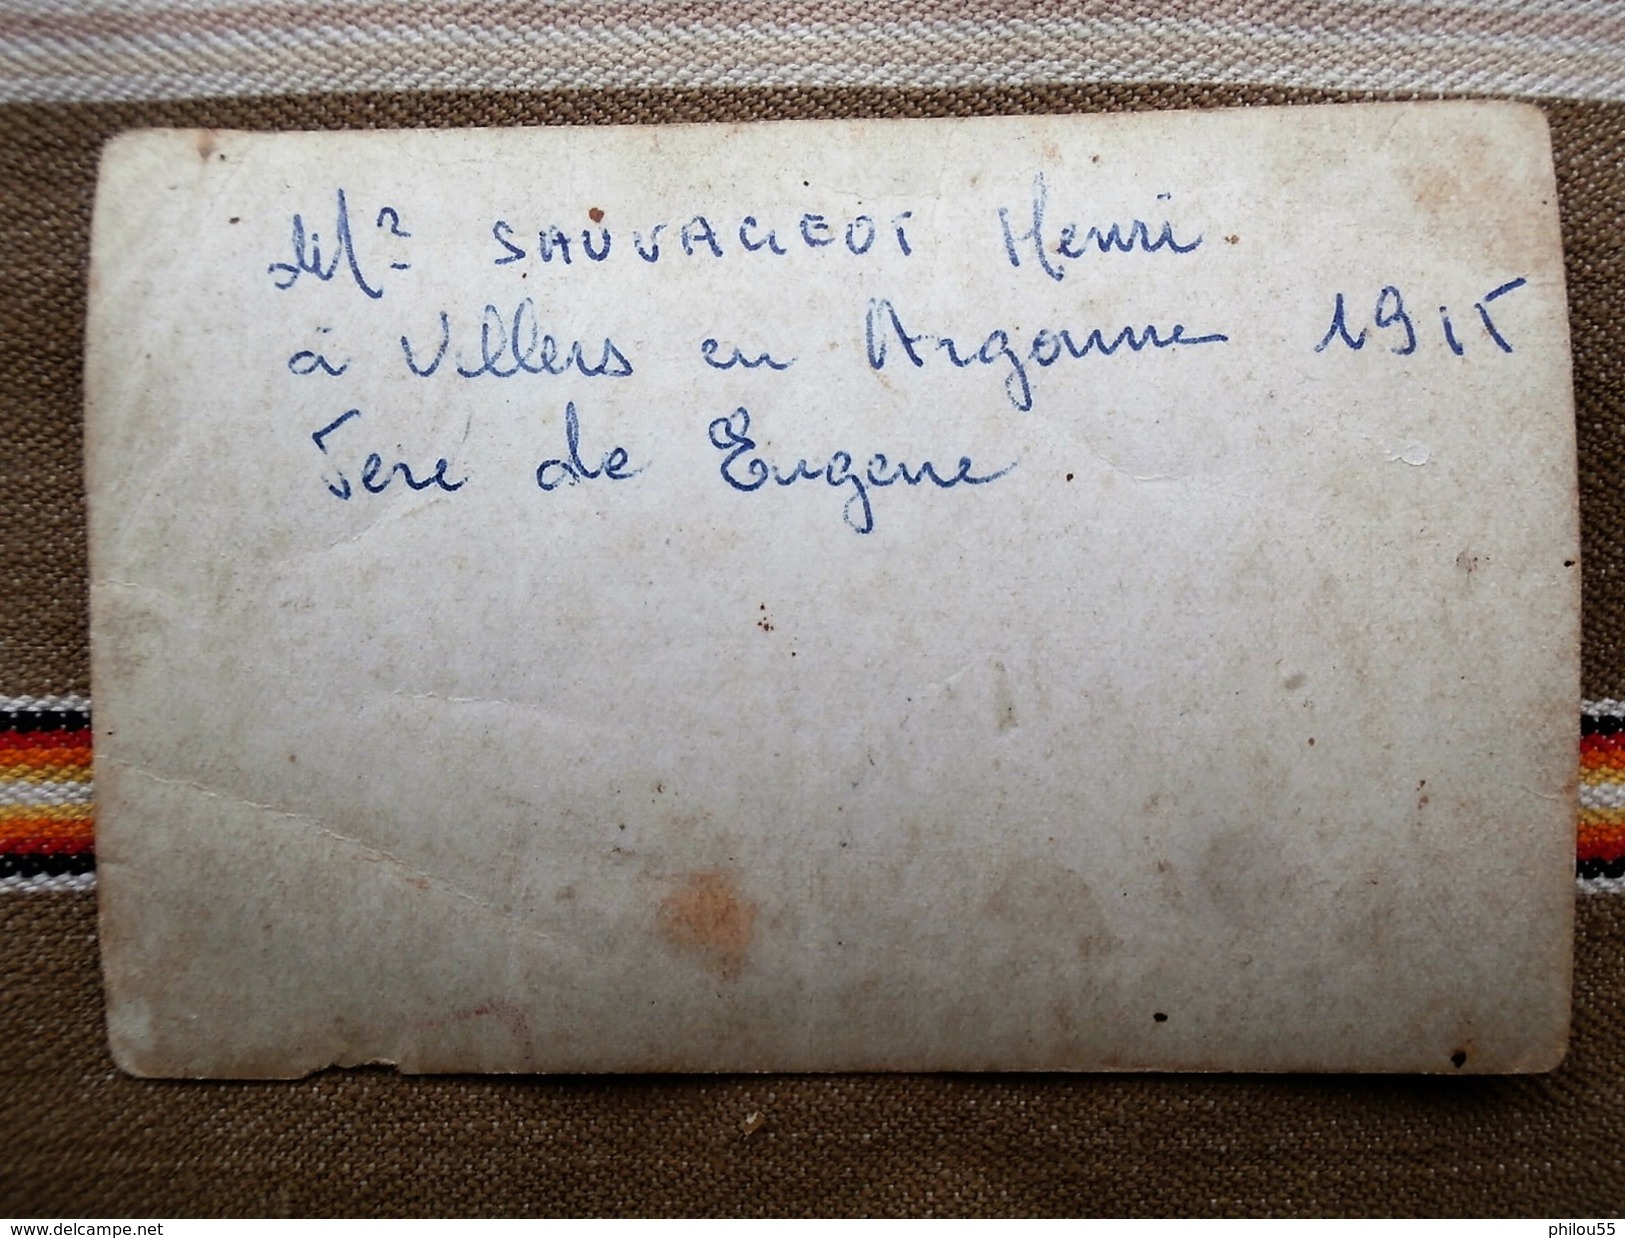 Mr SAUVAGEOT Henri
à Villers en Argonne 1915
de Eugene
www.delcampe.net
philou55